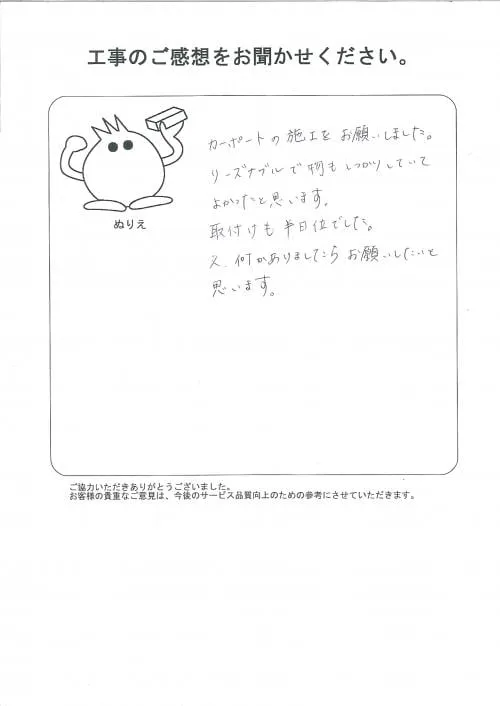 工事のご感想をお聞かせください。
カーポートの施工をお願いしました。
リーズナブルで物もしっかりしていて
よかったと思います。
取付けも半日位でした。
又、何かありましたらお願いしたいと
思います。
ぬりえ
ご協力いただきありがとうございました。
お客様の貴重なご意見は、今後のサービス品質向上のための参考にさせていただきます。